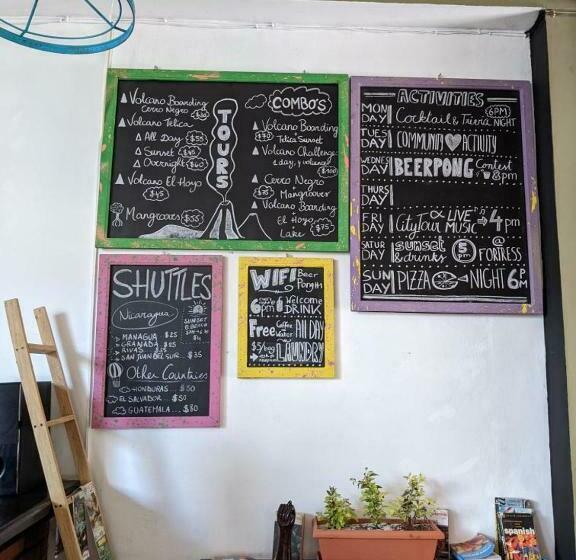 Volcano Boarding
Cerro Negro
Volcano Telica
All Day $55
Sunset
Overnight $60
Volcano El Hoyo
$45
Mangroves $55
TOURS
COMBO'S
Volcano Boarding
Telica Sunset
Volcano Challenge
1 day, 4 volcano
$100
Cerro Negro
Mangroover
Volcano Boarding
El Hoyo
Lake $75
ACTIVITIES
MON DAY Cocktail & Trivia NIGHT 6PM
TUES DAY COMMUNITY ACTIVITY
WEDNES DAY BEERPONG Contest 8pm
THURS DAY
FRI DAY City Tour & LIVE MUSIC 4pm
SATUR DAY sunset & drinks 5 pm @ FORTRESS
SUN DAY PIZZA NIGHT 6PM
SHUTTLES
Nicaragua
SUNSET
MANAGUA $25
GRANADA $25
RIVAS
SAN JUAN DEL SUR... $35
Other Countries
HONDURAS... $50
EL SALVADOR... $50
GUATEMALA... $80
WIFI Beer
6pm Welcome
DRINK
Free Coffee ALL DAY
$5/bag LAUNDRY
spanish